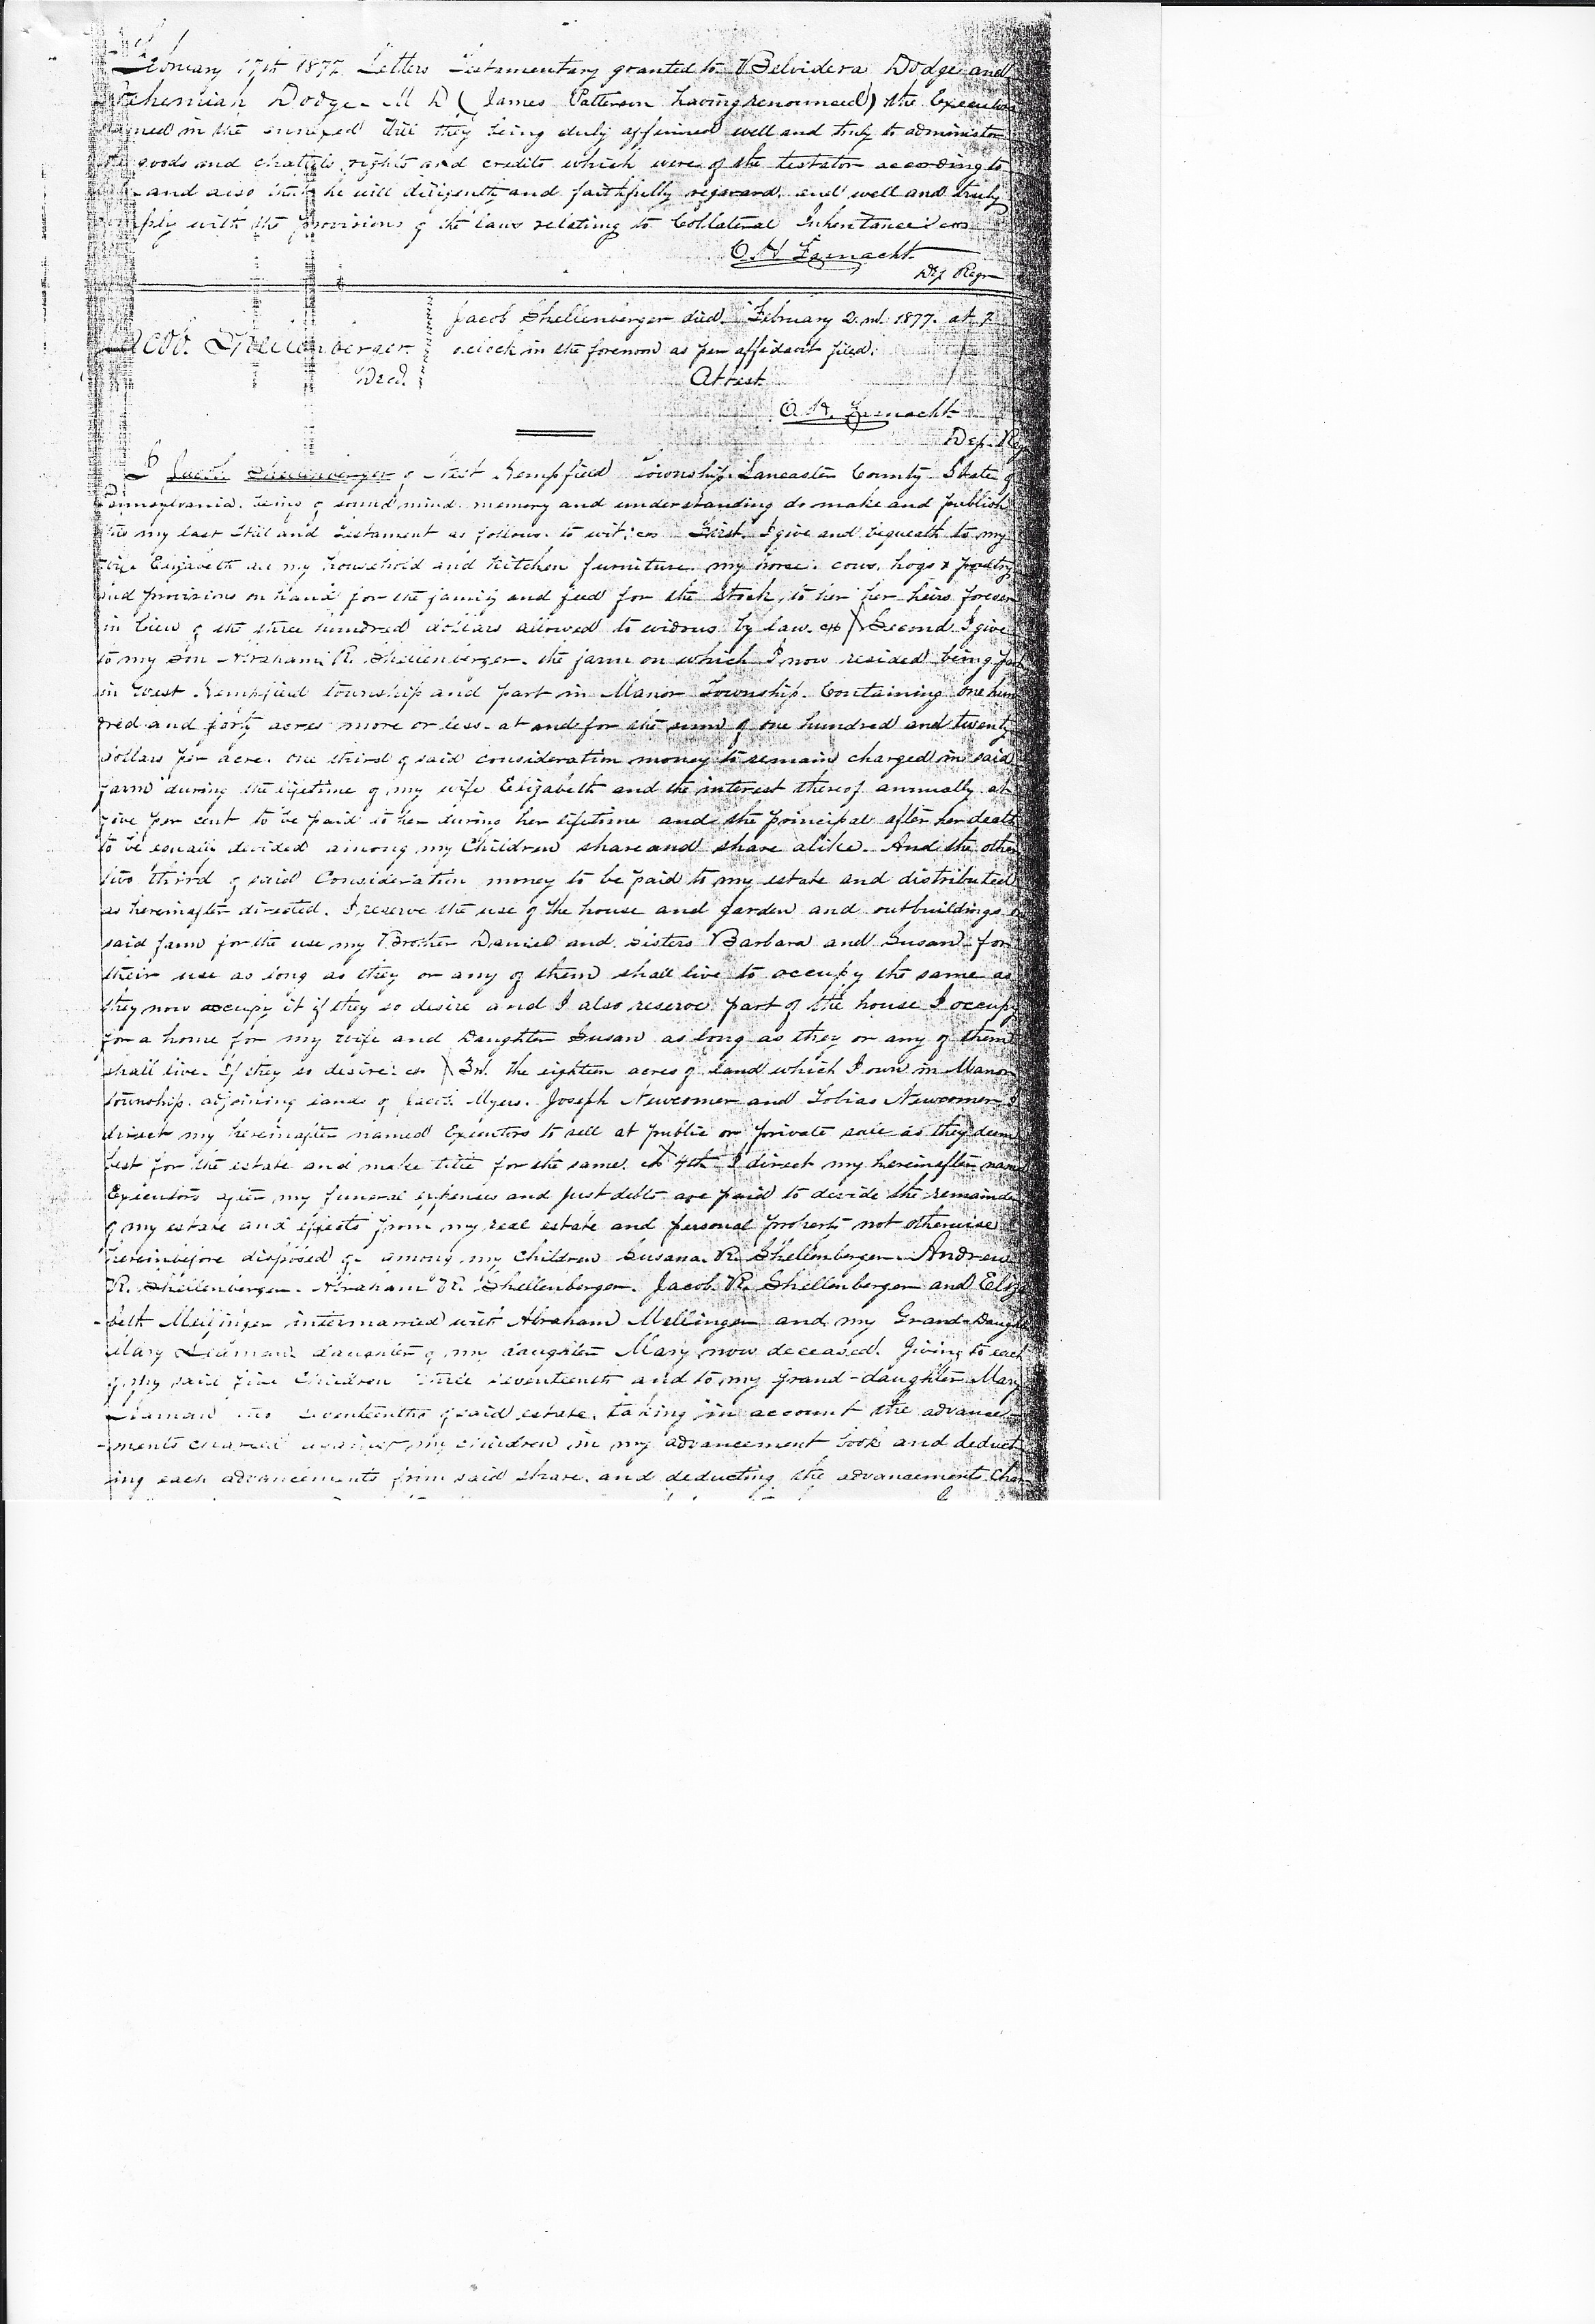 February 17th 1877. Letters Testamentary granted to Belvidera Dodge and
Nehemiah Dodge M D (James Patterson having renounced) the Executors
named in the annexed Will they being duly affirmed well and truly to administer
the goods and chattels rights and credits which were of the testator according to
and also that he will diligently and faithfully regard and well and truly
comply with the provisions of the laws relating to Collateral Inheritance
Dep Regr
Jacob Shellenberger died February 2nd 1877. at 7
Jacob Shellenberger. oclock in the forenoon as per affidavit filed.
Decd. Attest
Dep. Reg
I Jacob Shellenberger of West Hempfield Township Lancaster County State of
Pennsylvania. being of sound mind memory and understanding do make and publish
this my last Will and Testament as follows. to wit: First. I give and bequeath to my
wife Elizabeth all my household and kitchen furniture. my horse. cows. hogs & poultry
and provisions on hand for the family and feed for the stock, to her her heirs forever
in lieu of the three hundred dollars allowed to widows by law. Second. I give
to my son Abraham R. Shellenberger. the farm on which I now resided being part
in West Hempfield township and part in Manor Township. Containing one hun
dred and forty acres more or less. at and for the sum of one hundred and twenty
dollars per acre. one third of said consideration money to remain charged in said
farm during the lifetime of my wife Elizabeth and the interest thereof annually at
five per cent to be paid to her during her lifetime and the principal after her death
to be equally divided among my Children share and share alike. And the other
two third of said Consideration money to be paid to my estate and distributed
as hereinafter directed. I reserve the use of the house and garden and outbuildings on
said farm for the use my Brother Daniel and sisters Barbara and Susan for
their use as long as they or any of them shall live to occupy the same as
they now occupy it if they so desire and I also reserve part of the house I occupy
for a home for my wife and Daughter Susan as long as they or any of them
shall live. If they so desire. 3rd. the eighteen acres of land which I own in Manor
township. adjoining lands of Jacob Myers. Joseph Newcomer and Tobias Newcomer I
direct my hereinafter named Executors to sell at public or private sale as they deem
best for the estate and make title for the same. 4th I direct my hereinafter named
Executors after my funeral expenses and just debts are paid to devide the remainder
of my estate and effects from my real estate and personal property not otherwise
hereinbefore disposed of. among my Children Susana. R. Shellenberger. Andrew
R. Shellenberger. Abraham R. Shellenberger. Jacob. R. Shellenberger and Eliza
-beth Mellinger intermarried with Abraham Mellinger and my Grand-Daughter
Mary daughter of my daughter Mary now deceased. Giving to each
of my said five Children three seventeenth and to my grand-daughter Mary
two seventeenths of said estate. taking in account the advance-
-ments charged against my children in my advancement book and deduct
ing each advancements from said share. and deducting the advancements char